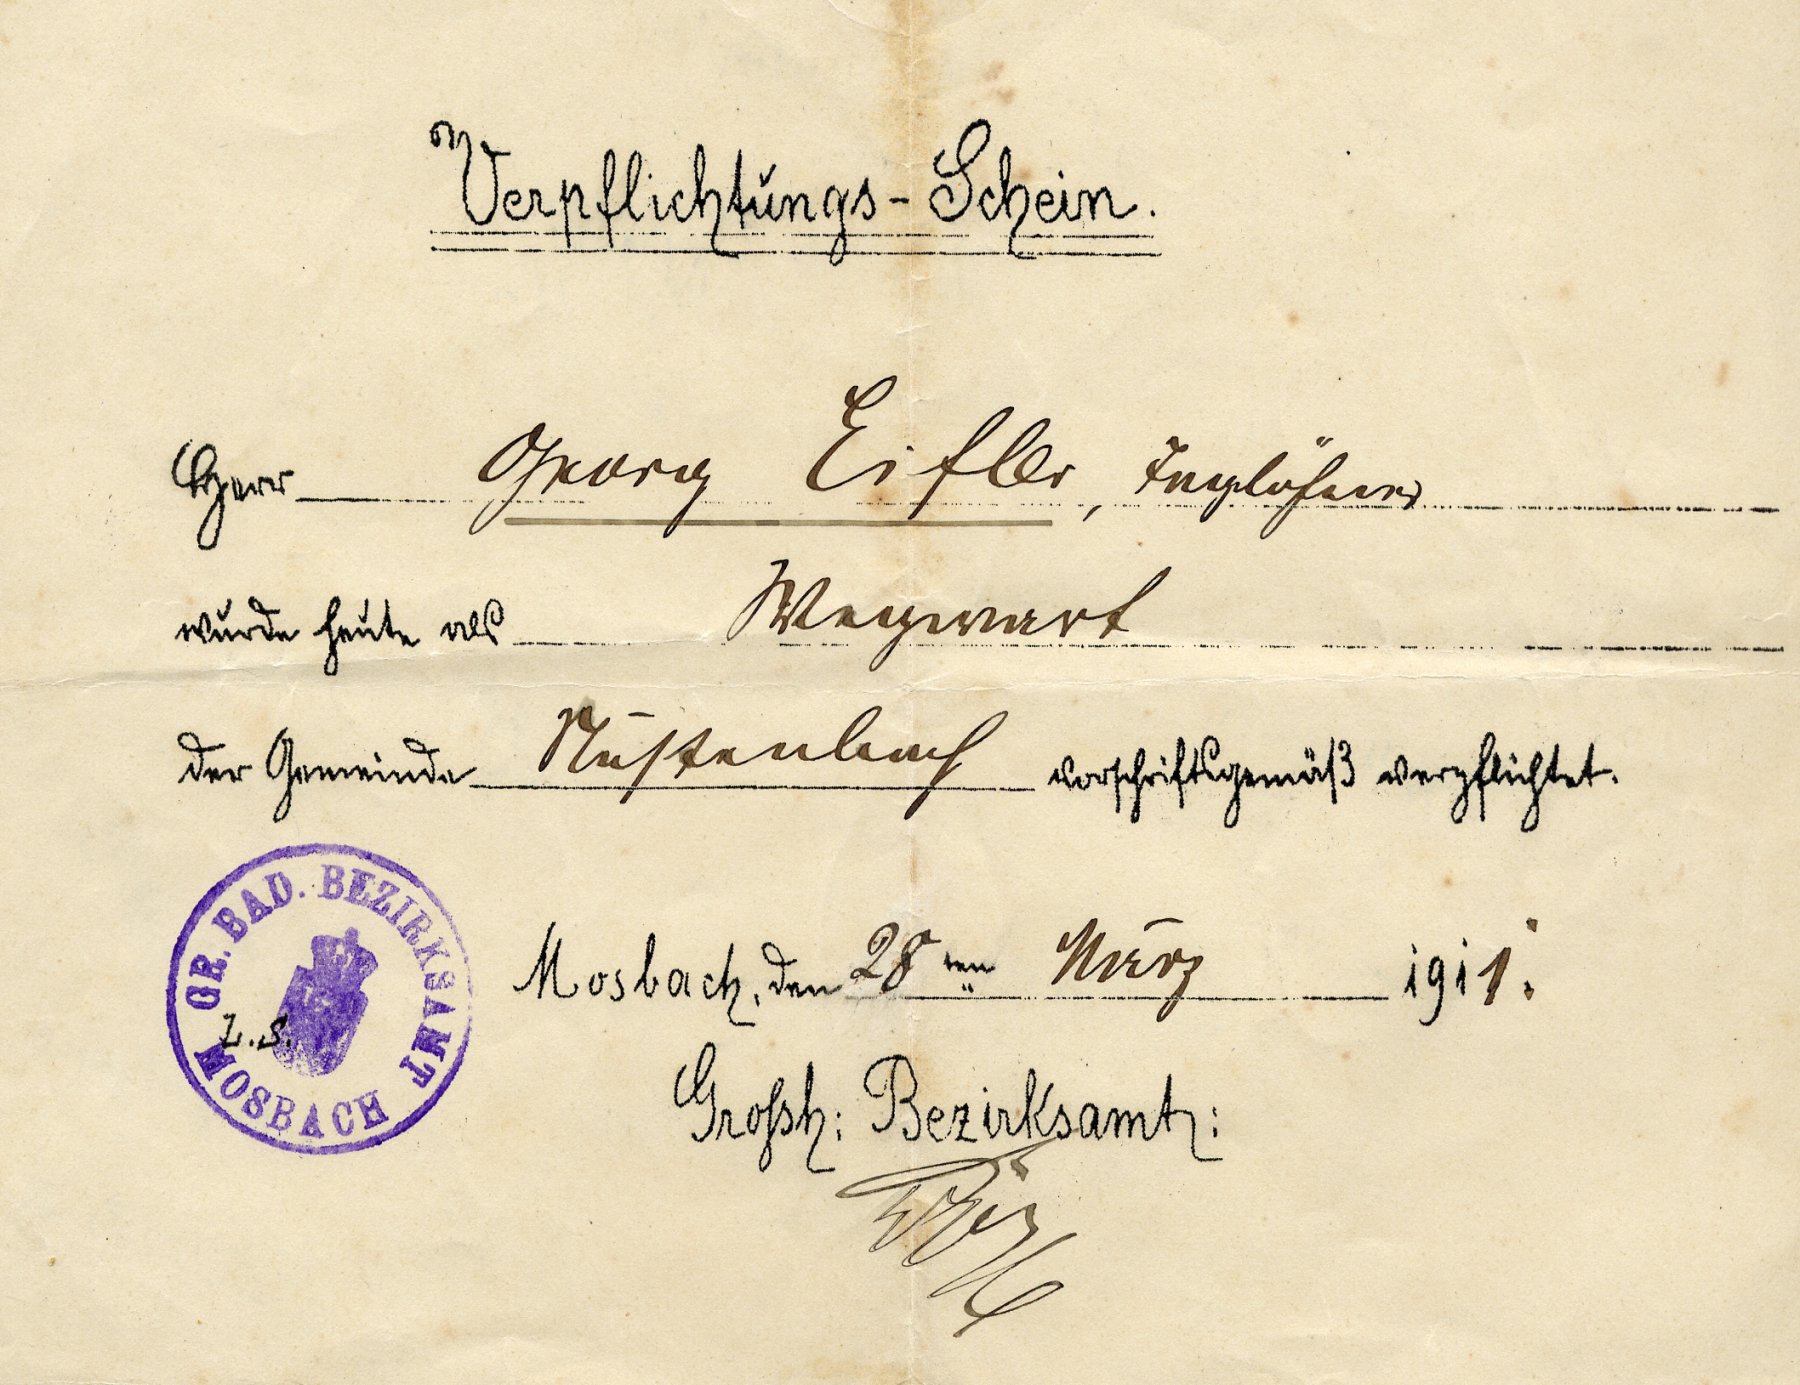 Verpflichtungs-Schein.
Herr Georg Eifler, Taglöhner
wurde heute als Wegwart
der Gemeinde Nüstenbach vorschriftsgemäß verpflichtet.
GR. BAD. BEZIRKSAMT MOSBACH
L.S.
Mosbach, den 28ten März 1911.
Großh: Bezirksamt: